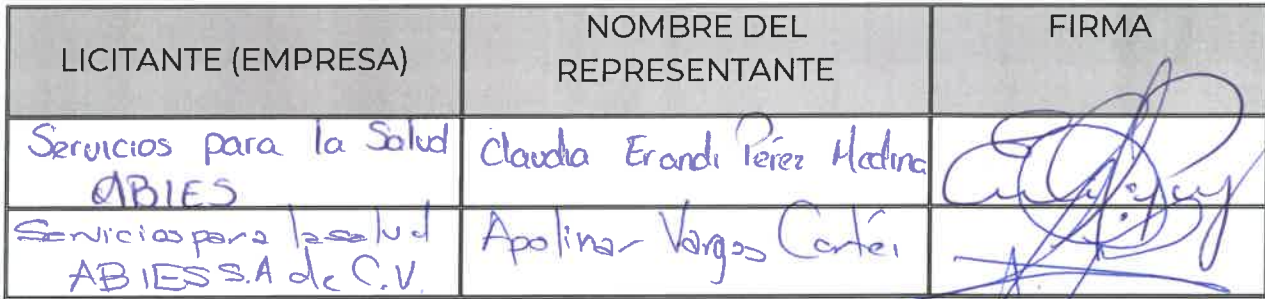 LICITANTE (EMPRESA)
NOMBRE DEL
REPRESENTANTE
FIRMA
Servicios para la Salud
ABIES
Claudia Erandi Pérez Medina
Servicios para la salud
ABIES S.A de C.V.
Apolinar Vargas Cortés